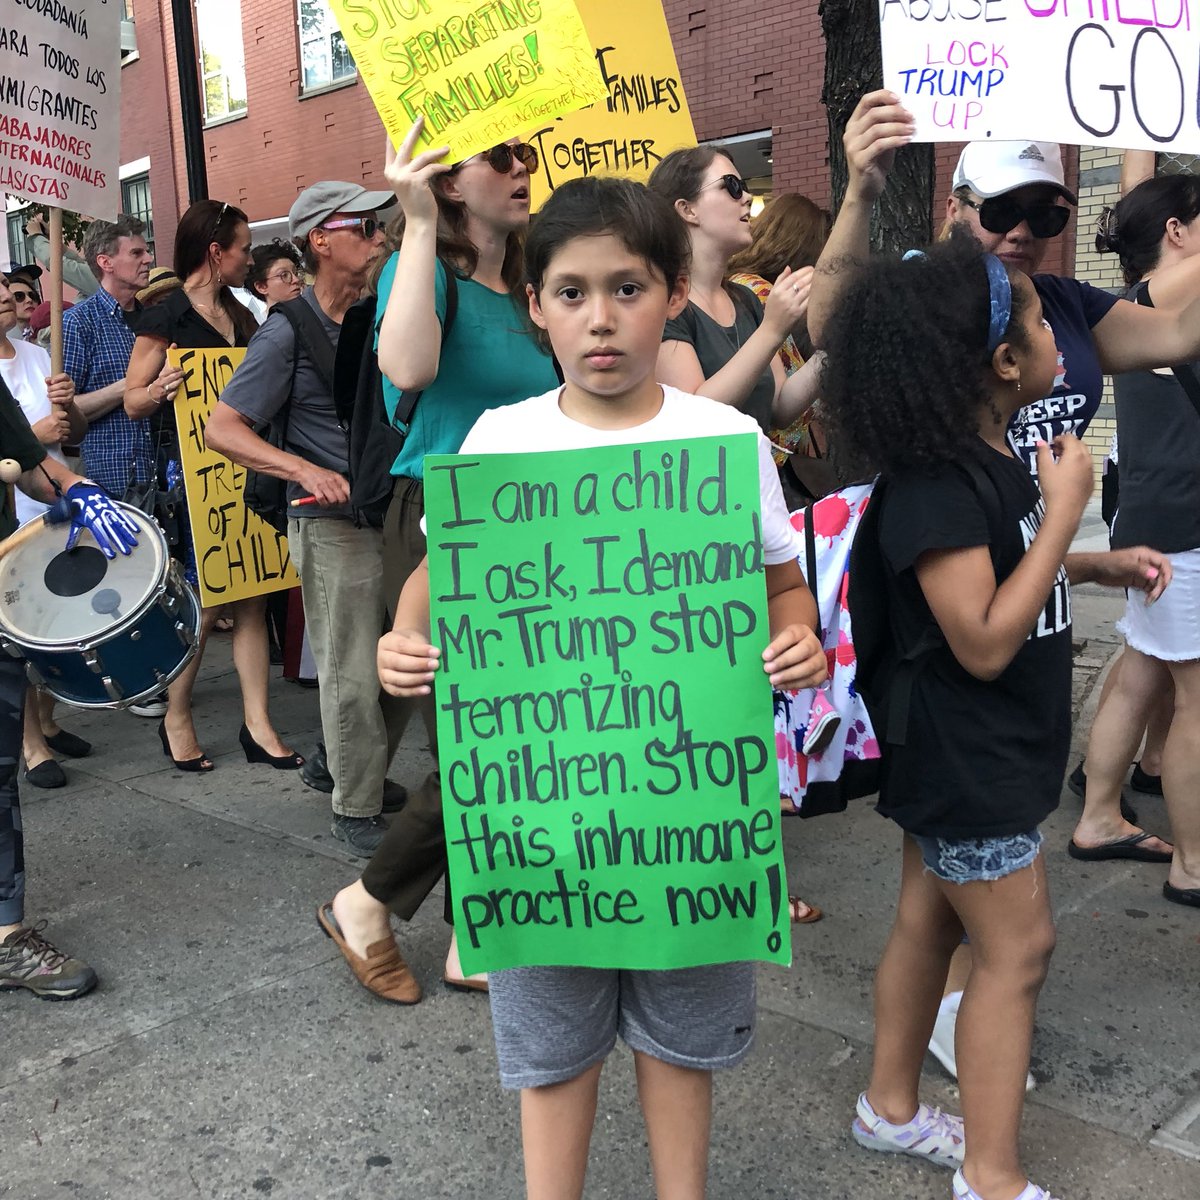 CIUDADANÍA
PARA TODOS LOS
INMIGRANTES
TRABAJADORES
INTERNACIONALES
CLASISTAS
STOP
SEPARATING
FAMILIES!
FAMILIES BELONG TOGETHER
FAMILIES
TOGETHER
ABUSE CHILD
LOCK
TRUMP
UP.
GO
END
TRE
OF
CHILD
I am a child.
I ask, I demand
Mr. Trump stop
terrorizing
children. Stop
this inhumane
practice now!